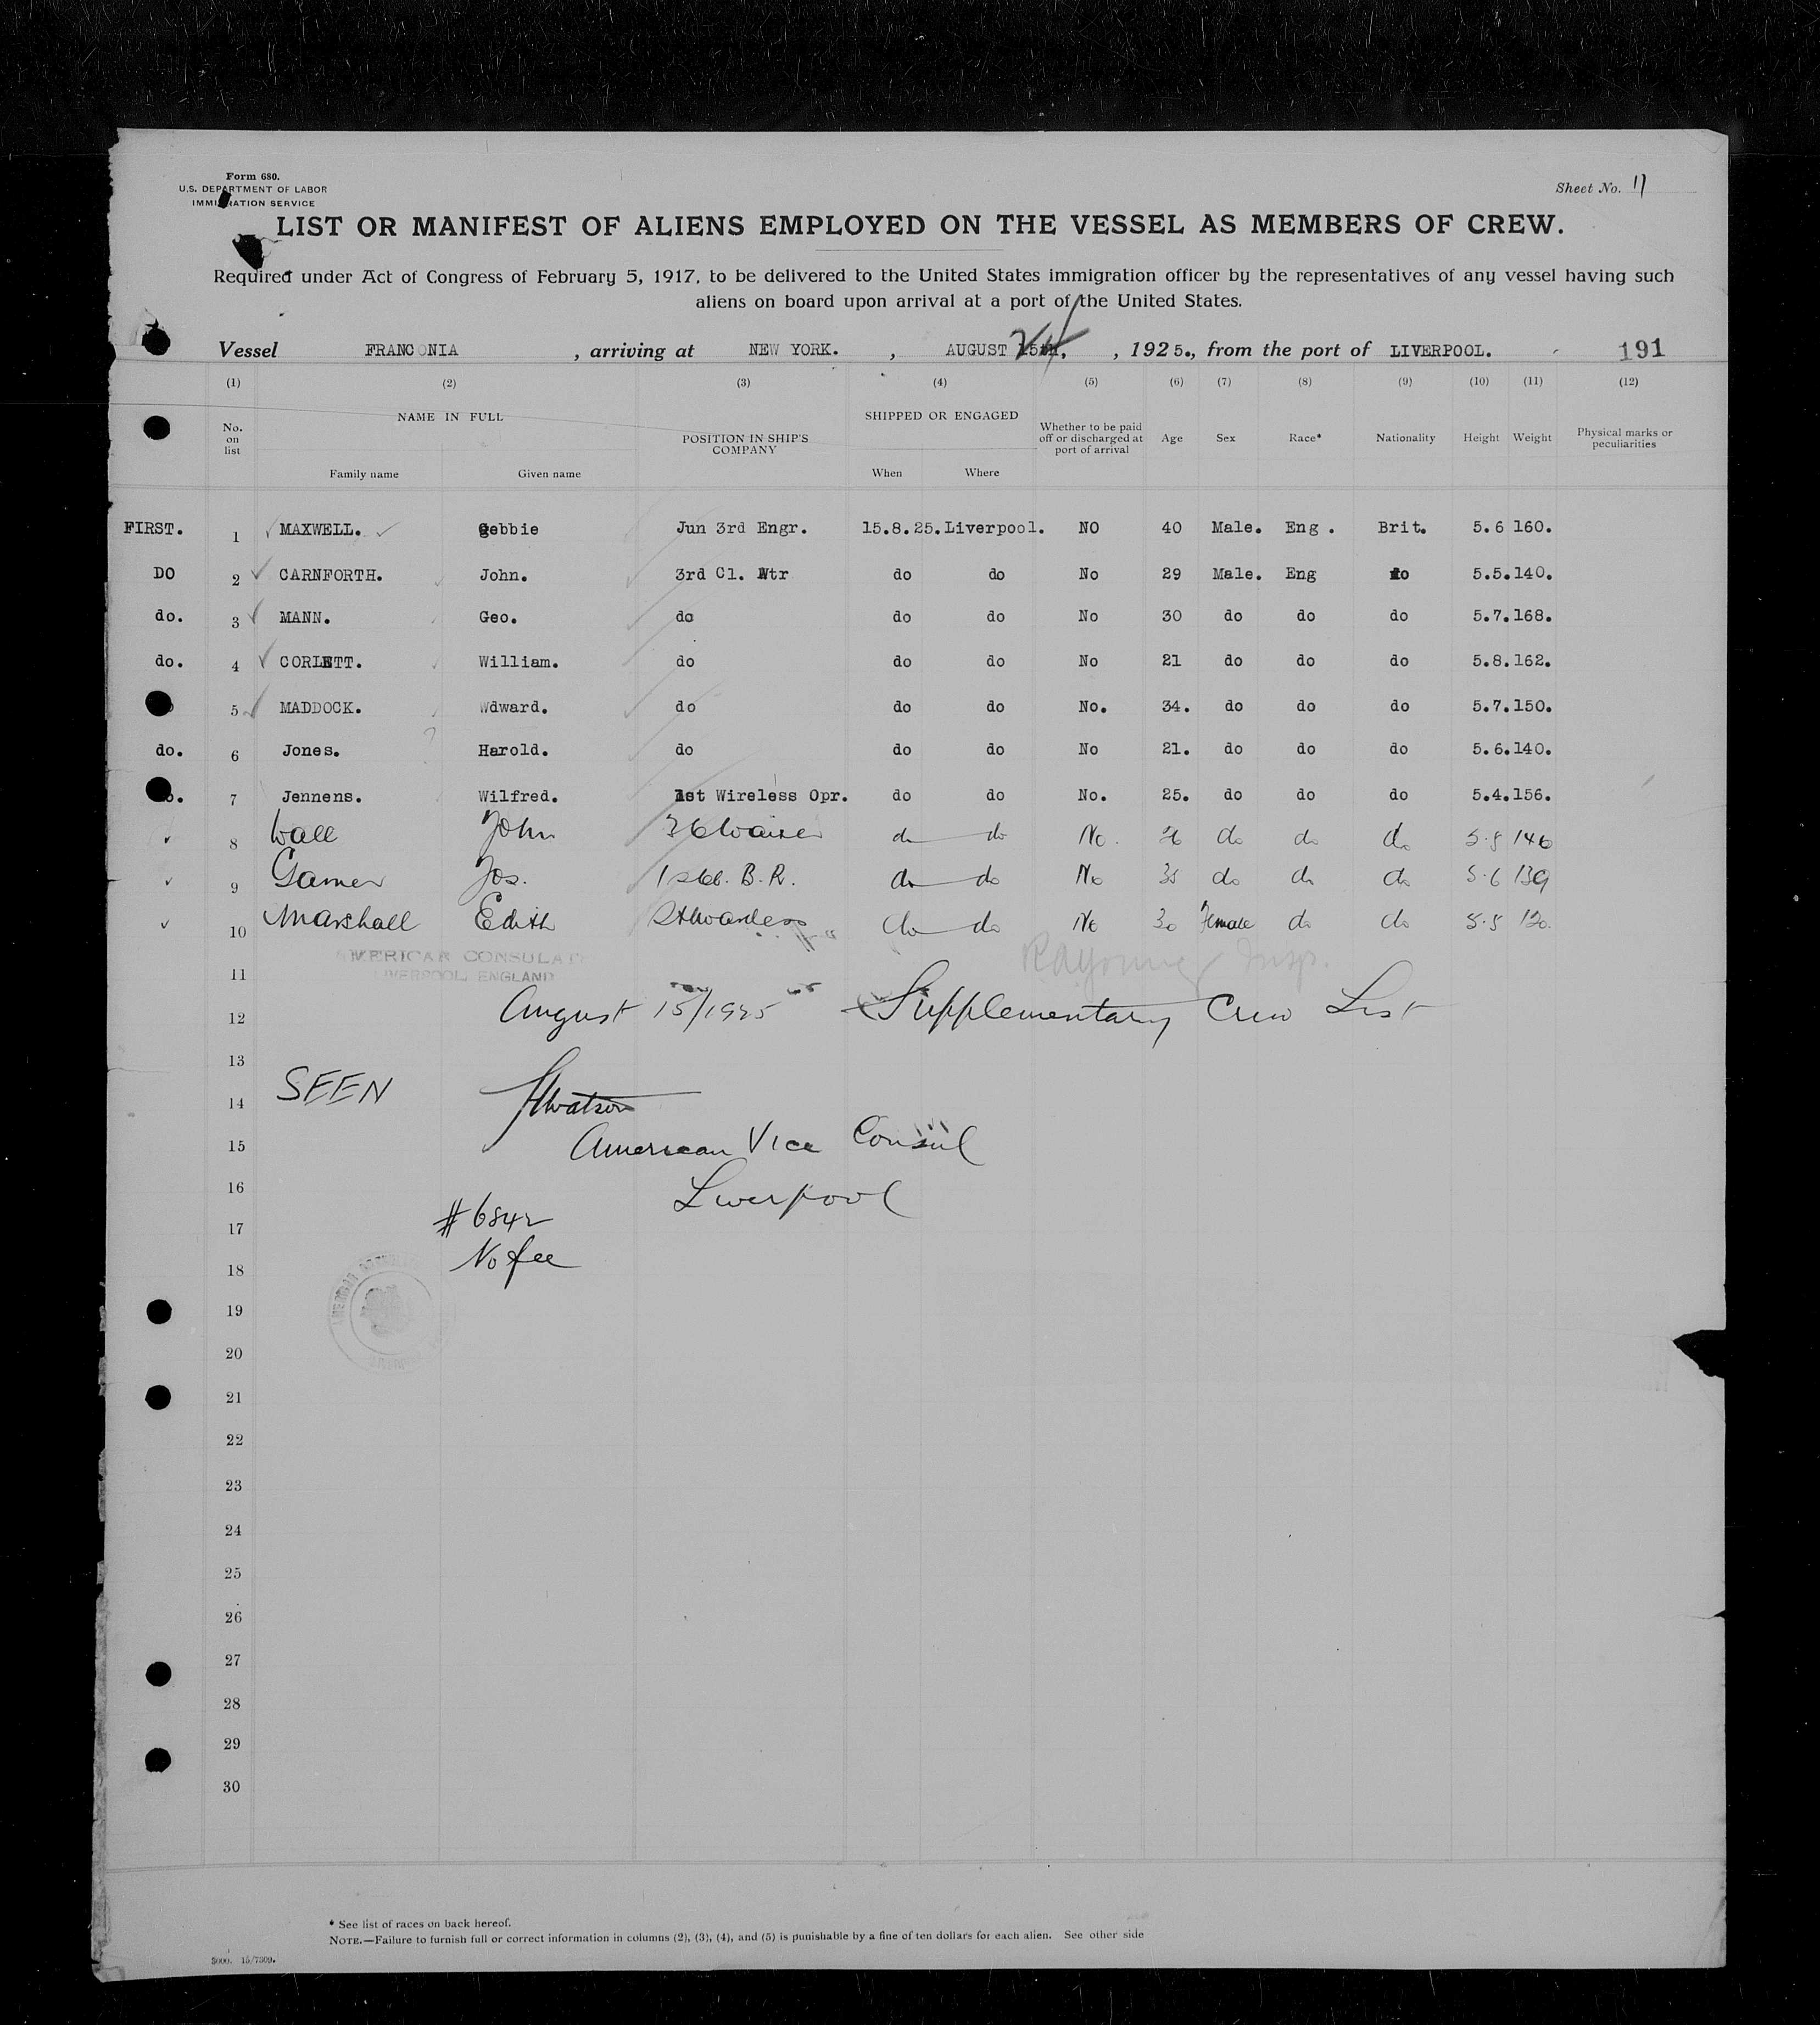 Form 680.
U.S. DEPARTMENT OF LABOR
IMMIGRATION SERVICE
Sheet No. 11
LIST OR MANIFEST OF ALIENS EMPLOYED ON THE VESSEL AS MEMBERS OF CREW.
Required under Act of Congress of February 5, 1917, to be delivered to the United States immigration officer by the representatives of any vessel having such
aliens on board upon arrival at a port of the United States.
Vessel FRANCONIA , arriving at NEW YORK. , AUGUST 24 , 1925., from the port of LIVERPOOL. 191
(1) (2) (3) (4) (5) (6) (7) (8) (9) (10) (11) (12)
No. on list NAME IN FULL Family name Given name POSITION IN SHIP'S COMPANY SHIPPED OR ENGAGED When Where Whether to be paid off or discharged at port of arrival Age Sex Race* Nationality Height Weight Physical marks or peculiarities
FIRST. 1 MAXWELL. Gebbie Jun 3rd Engr. 15.8.25. Liverpool. NO 40 Male. Eng . Brit. 5.6 160.
DO 2 CARNFORTH. John. 3rd Cl. Wtr do do No 29 Male. Eng do 5.5. 140.
do. 3 MANN. Geo. do do do No 30 do do do 5.7. 168.
do. 4 CORLETT. William. do do do No 21 do do do 5.8. 162.
5 MADDOCK. Wdward. do do do No. 34. do do do 5.7. 150.
do. 6 Jones. Harold. do do do No 21. do do do 5.6. 140.
7 Jennens. Wilfred. 1st Wireless Opr. do do No. 25. do do do 5.4. 156.
8 Wall John do do No. 26 do do do 5.8 146
9 Garner Jos. B.R. do do No 35 do do do 5.6 139
10 Marshall Edith Stewardess do do No 30 Female do do 5.5 120.
AMERICAN CONSULATE
LIVERPOOL, ENGLAND
11
12 August 15/1925 Supplementary Crew List
13
SEEN
14 Watson
15 American Vice Consul
16 Liverpool
17 #6842
18 No fee
19
20
21
22
23
24
25
26
27
28
29
30
* See list of races on back hereof.
NOTE.—Failure to furnish full or correct information in columns (2), (3), (4), and (5) is punishable by a fine of ten dollars for each alien. See other side